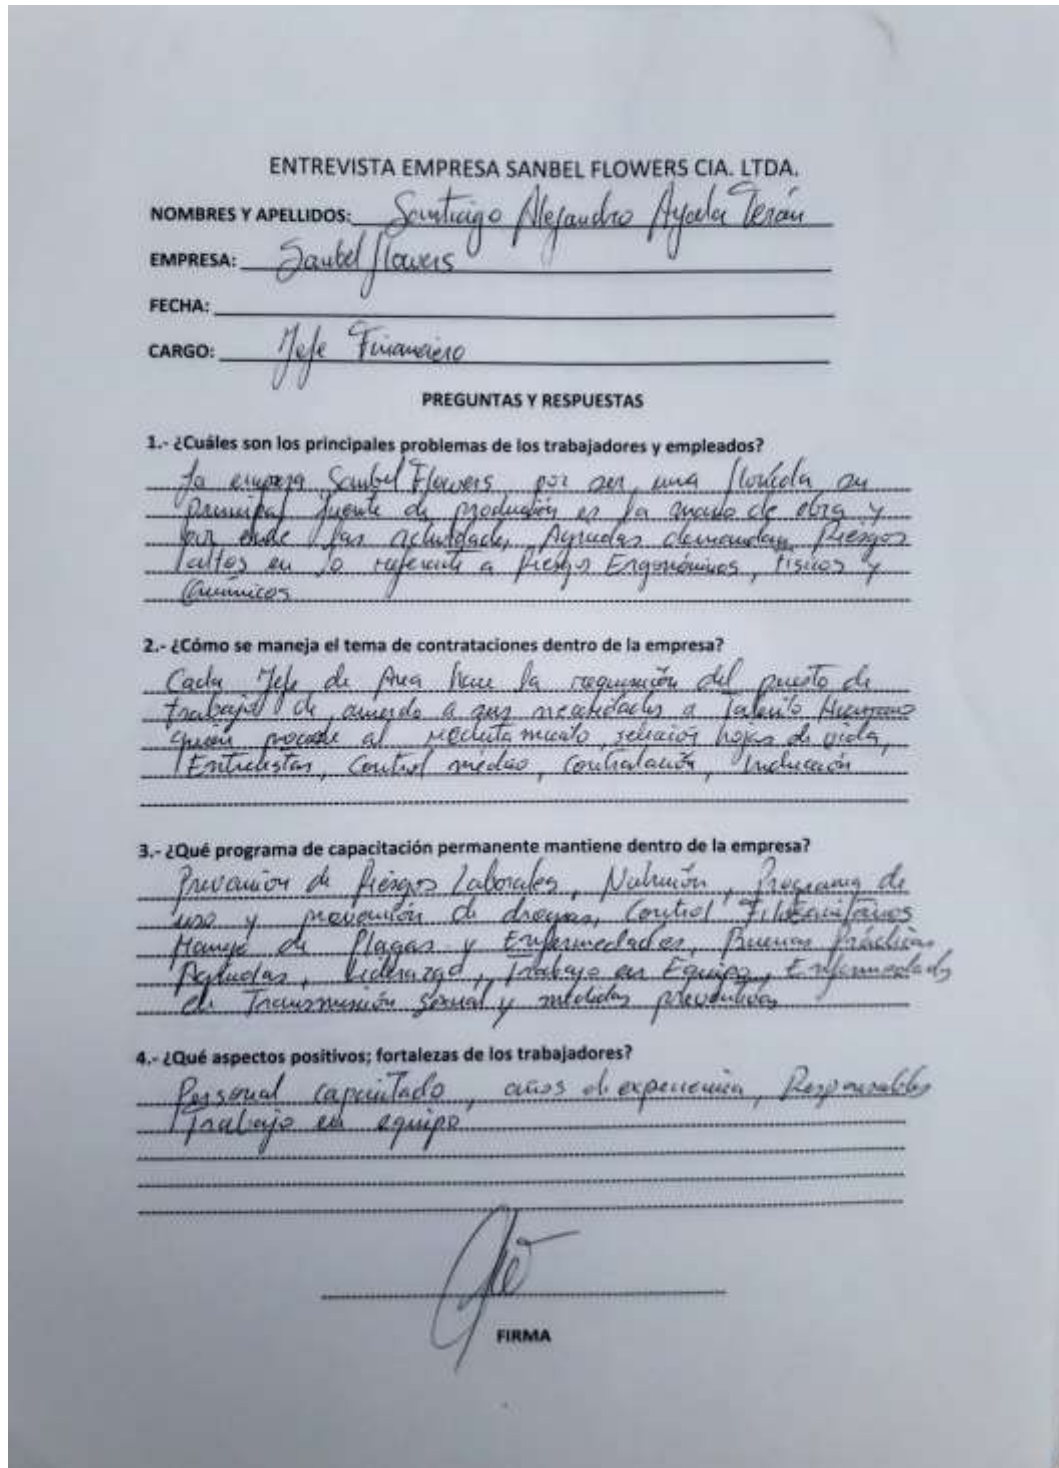 ENTREVISTA EMPRESA SANBEL FLOWERS CIA. LTDA.
NOMBRES Y APELLIDOS: Santiago Alejandro Ayala Terán
EMPRESA: Sanbel Flowers
FECHA:
CARGO: Jefe Financiero
PREGUNTAS Y RESPUESTAS
1.- ¿Cuáles son los principales problemas de los trabajadores y empleados?
La empresa Sanbel Flowers por ser una su
Principal fuente de producción es la mano de obra y
por ende las actividades Agricolas demandan Riesgos
altos en lo referente a Riesgos Ergonómicos, físicos y
Químicos
2.- ¿Cómo se maneja el tema de contrataciones dentro de la empresa?
Cada Jefe de Area hace la requisición del puesto de
trabajo de acuerdo a sus necesidades a Talento Humano
quien procede al reclutamiento, selección hojas de vida,
Entrevistas, Control médico, Contratación, Inducción
3.- ¿Qué programa de capacitación permanente mantiene dentro de la empresa?
Prevención de Riesgos Laborales, Nutrición, Programa de
uso y prevención de drogas, Control Fitosanitarios
Manejo de Plagas y Enfermedades, Buenas Prácticas
Agricolas, Liderazgo, Trabajo en Equipo, Enfermedades
de Transmisión sexual y medidas preventivas
4.- ¿Qué aspectos positivos; fortalezas de los trabajadores?
Personal capacitado, años de experiencia, Responsables
Trabajo en equipo
FIRMA